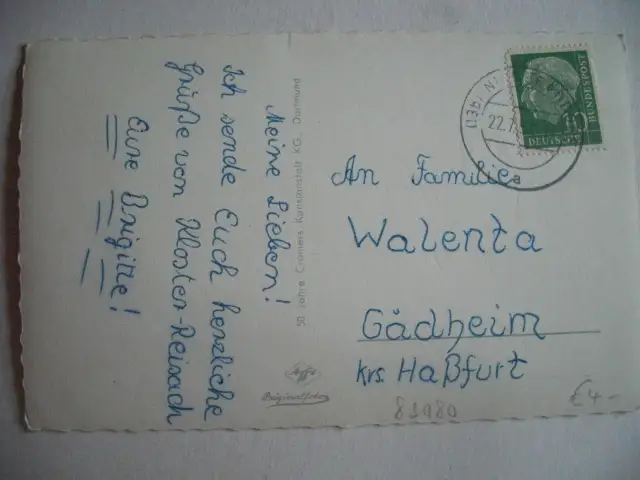 Meine Lieben!
Ich sende Euch herzliche
Grüße von Kloster-Reisach
Eure Brigitte!
50 Jahre Cramers Kunstanstalt KG., Dortmund
Agfa
Originalfoto
(13b)
22.7
10
BUNDESPOST
DEUTSCHE
An Familie
Walenta
Gädheim
Krs Haßfurt
81980
€ 4.-